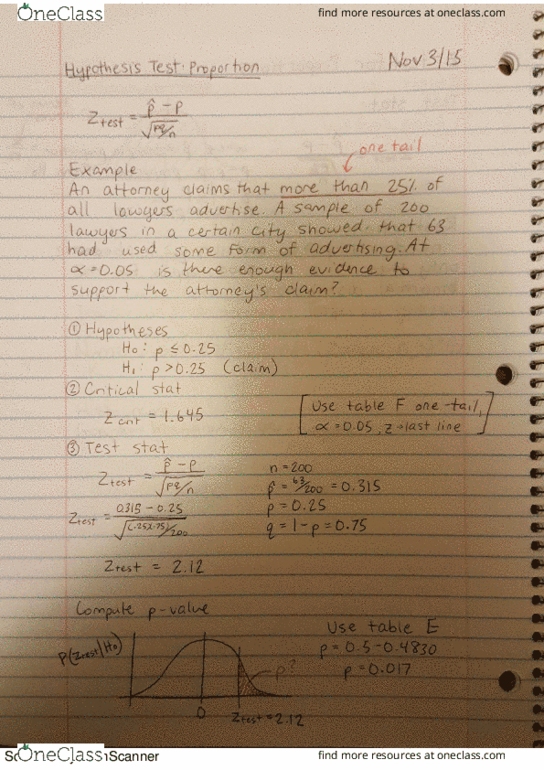 OneClass
find more resources at oneclass.com
Hypothesis Test: Proportion
Nov 3/15
Ztest = p̂ - p / √pq/n
one tail
Example
An attorney claims that more than 25% of
all lawyers advertise. A sample of 200
lawyers in a certain city showed that 63
had used some form of advertising. At
α = 0.05 is there enough evidence to
support the attorney's claim?
① Hypotheses
H₀: p ≤ 0.25
H₁: p > 0.25 (claim)
② Critical stat
Z crit = 1.645
[Use table F one-tail,
α = 0.05, z → last line]
③ Test stat
Ztest = p̂ - p / √pq/n
n = 200
p̂ = 63/200 = 0.315
p = 0.25
q = 1 - p = 0.75
Ztest = 0.315 - 0.25 / √(.25)(.75)/200
Ztest = 2.12
Compute p-value
Use table E
p = 0.5 - 0.4830
p = 0.017
P(Ztest|H₀)
p?
0
Ztest = 2.12
OneClass
Scanner
find more resources at oneclass.com